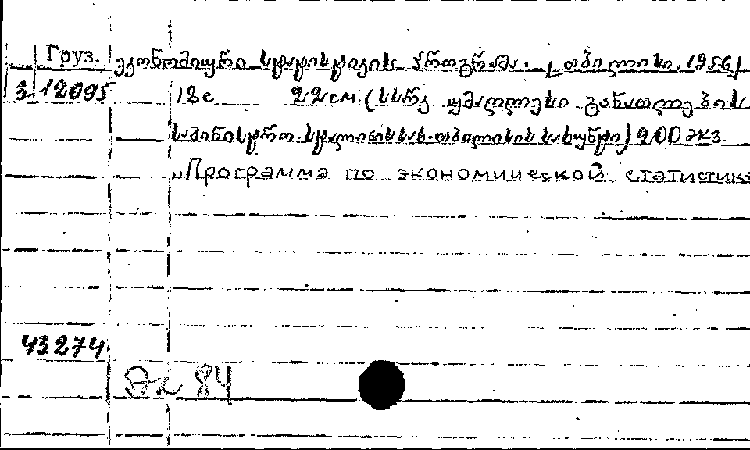 Груз. ეკონომიკური სტატისტიკის პროგრამა. [თბილისი, 1956]
3-12095 12с 22см (სსრკ უმაღლესი განათლების
სამინისტრო. სტალინის სახ. თბილისის სახ. უნტი) 200 экз
„Программа по экономической статистике
43274
84